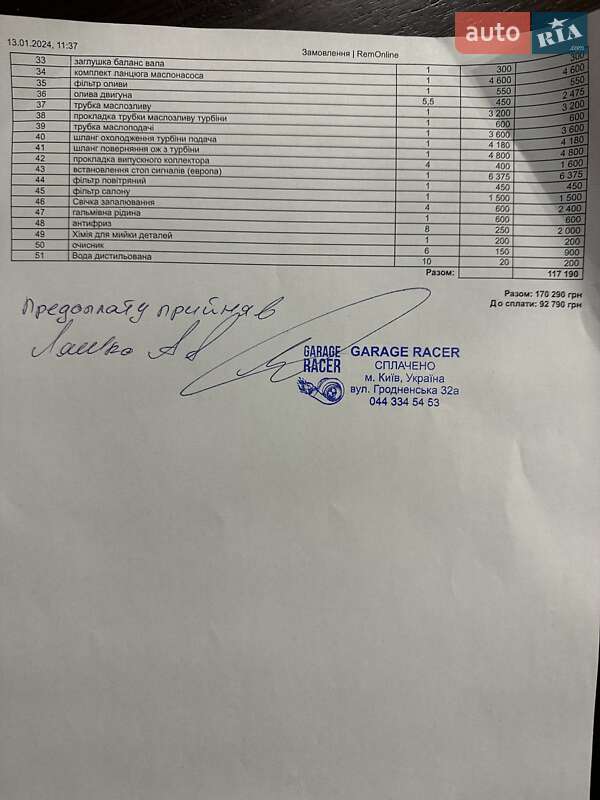 auto RIA.com
13.01.2024, 11:37 Замовлення | RemOnline
33 заглушка баланс вала 1 300 300
34 комплект ланцюга маслонасоса 1 4 600 4 600
35 фільтр оливи 1 550 550
36 олива двигуна 5,5 450 2 475
37 трубка маслозливу 1 3 200 3 200
38 прокладка трубки маслозливу турбіни 1 600 600
39 трубка маслоподачі 1 3 600 3 600
40 шланг охолодження турбіни подача 1 4 180 4 180
41 шланг поверняння ож з турбіни 1 4 800 4 800
42 прокладка випускного коллектора 4 400 1 600
43 встановлення стоп сигналів (европа) 1 6 375 6 375
44 фільтр повітряний 1 450 450
45 фільтр салону 1 1 500 1 500
46 Свічка запалювання 4 600 2 400
47 гальмівна рідина 1 600 600
48 антифриз 8 250 2 000
49 Хімія для мийки деталей 1 200 200
50 очисник 6 150 900
51 Вода дистильована 10 20 200
Разом: 117 190
Разом: 170 290 грн
До сплати: 92 790 грн
Предоплату прийняв
Лашко А А
GARAGE RACER
GARAGE RACER
СПЛАЧЕНО
м. Київ, Україна
вул. Гродненська 32а
044 334 54 53